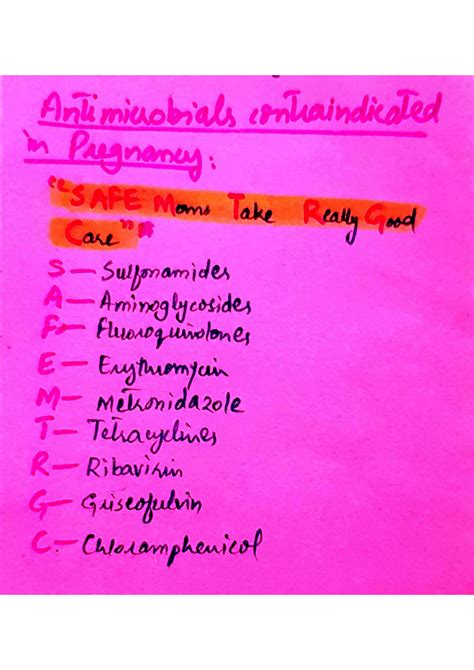 Antimicrobials contraindicated
in Pregnancy:
"SAFE Moms Take Really Good
Care"
S — Sulfonamides
A — Aminoglycosides
F — Fluoroquinolones
E — Erythromycin
M — Metronidazole
T — Tetracyclines
R — Ribavirin
G — Griseofulvin
C — Chloramphenicol